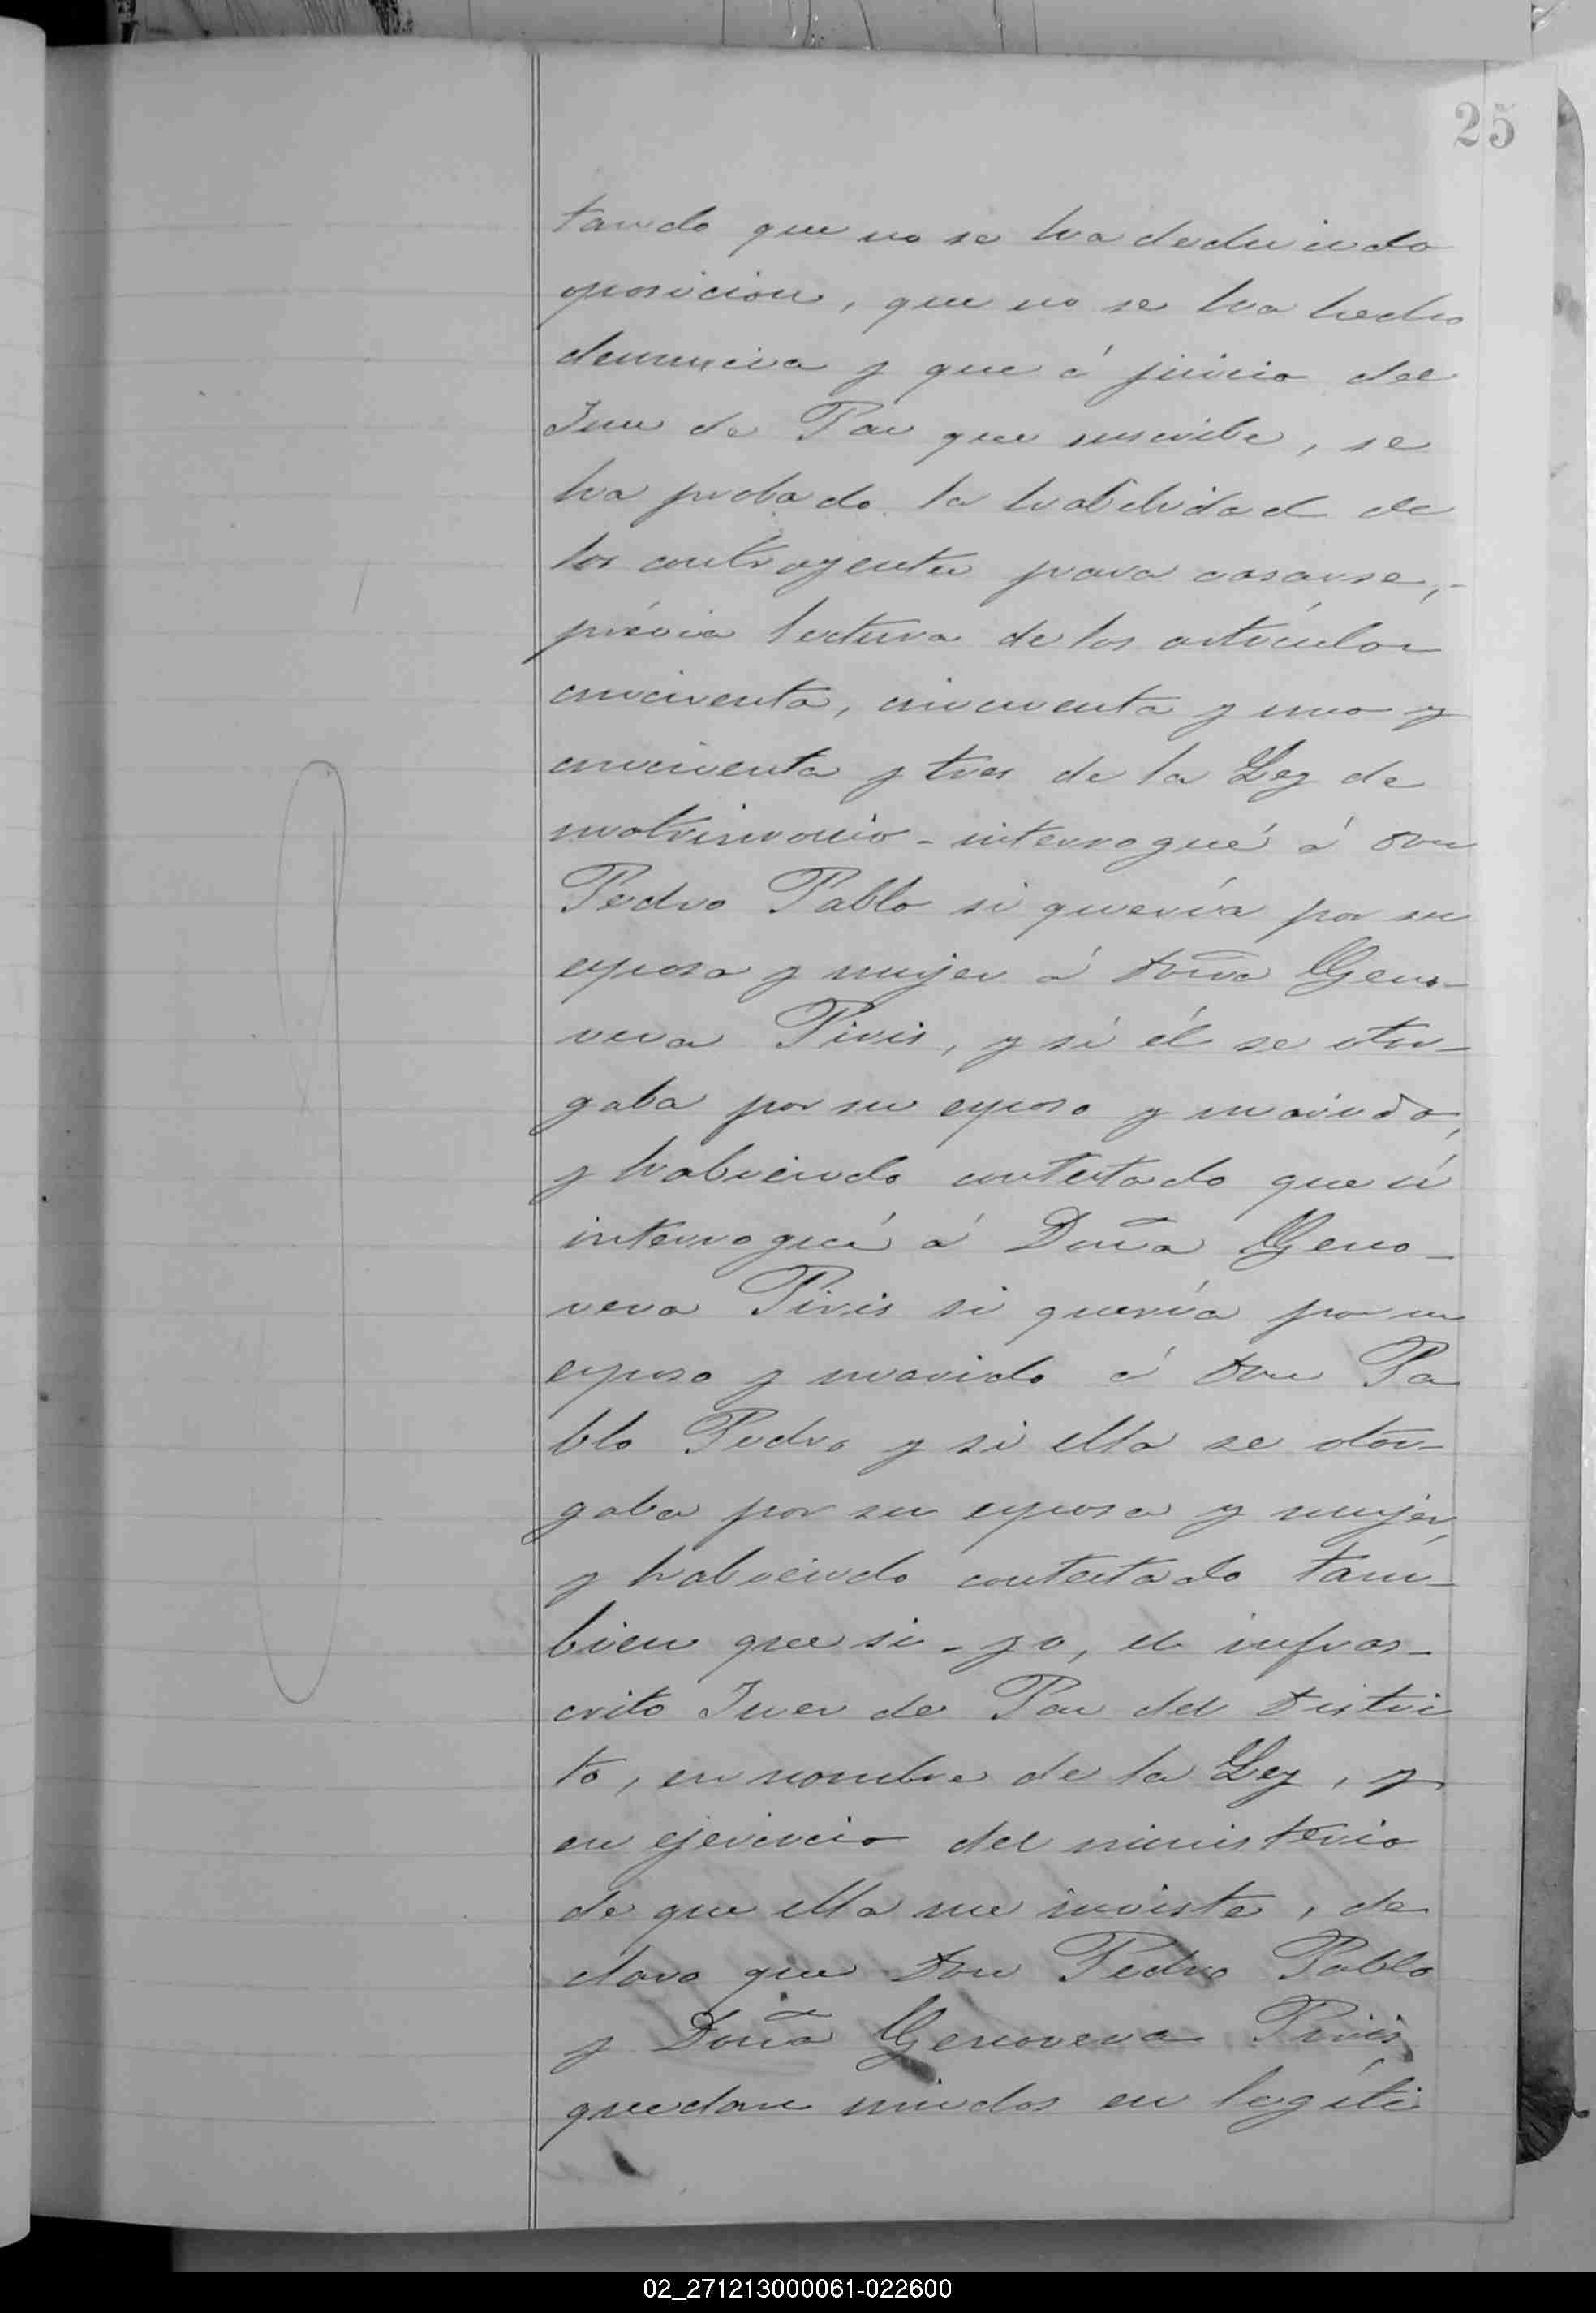 25
tando que no se ha deducido
oposicion, que no se ha hecho
denuncia y que á juicio del
Juez de Paz que suscribe, se
ha probado la habilidad de
los contrayentes para casarse,-
prévia lectura de los artículos
cincuenta, cincuenta y uno y
cincuenta y tres de la Ley de
matrimonio - interrogué á Don
Pedro Pablo si quería por su
esposa y mujer á Doña Geno-
veva Pivis, y si él se otor-
gaba por su esposo y marido,
y habiendo contestado que sí
interrogué á Doña Geno-
veva Pivis si quería por su
esposo y marido á Don Pa
blo Pedro y si ella se otor-
gaba por su esposa y mujer,
y habiendo contestado tam-
bien que si - yo, el infras-
crito Juez de Paz del Distri
to, en nombre de la Ley, y
en ejercicio del ministerio
de que ella me inviste, de
claro que Don Pedro Pablo
y Doña Genoveva Pivis
quedan unidos en legíti
02_271213000061-022600